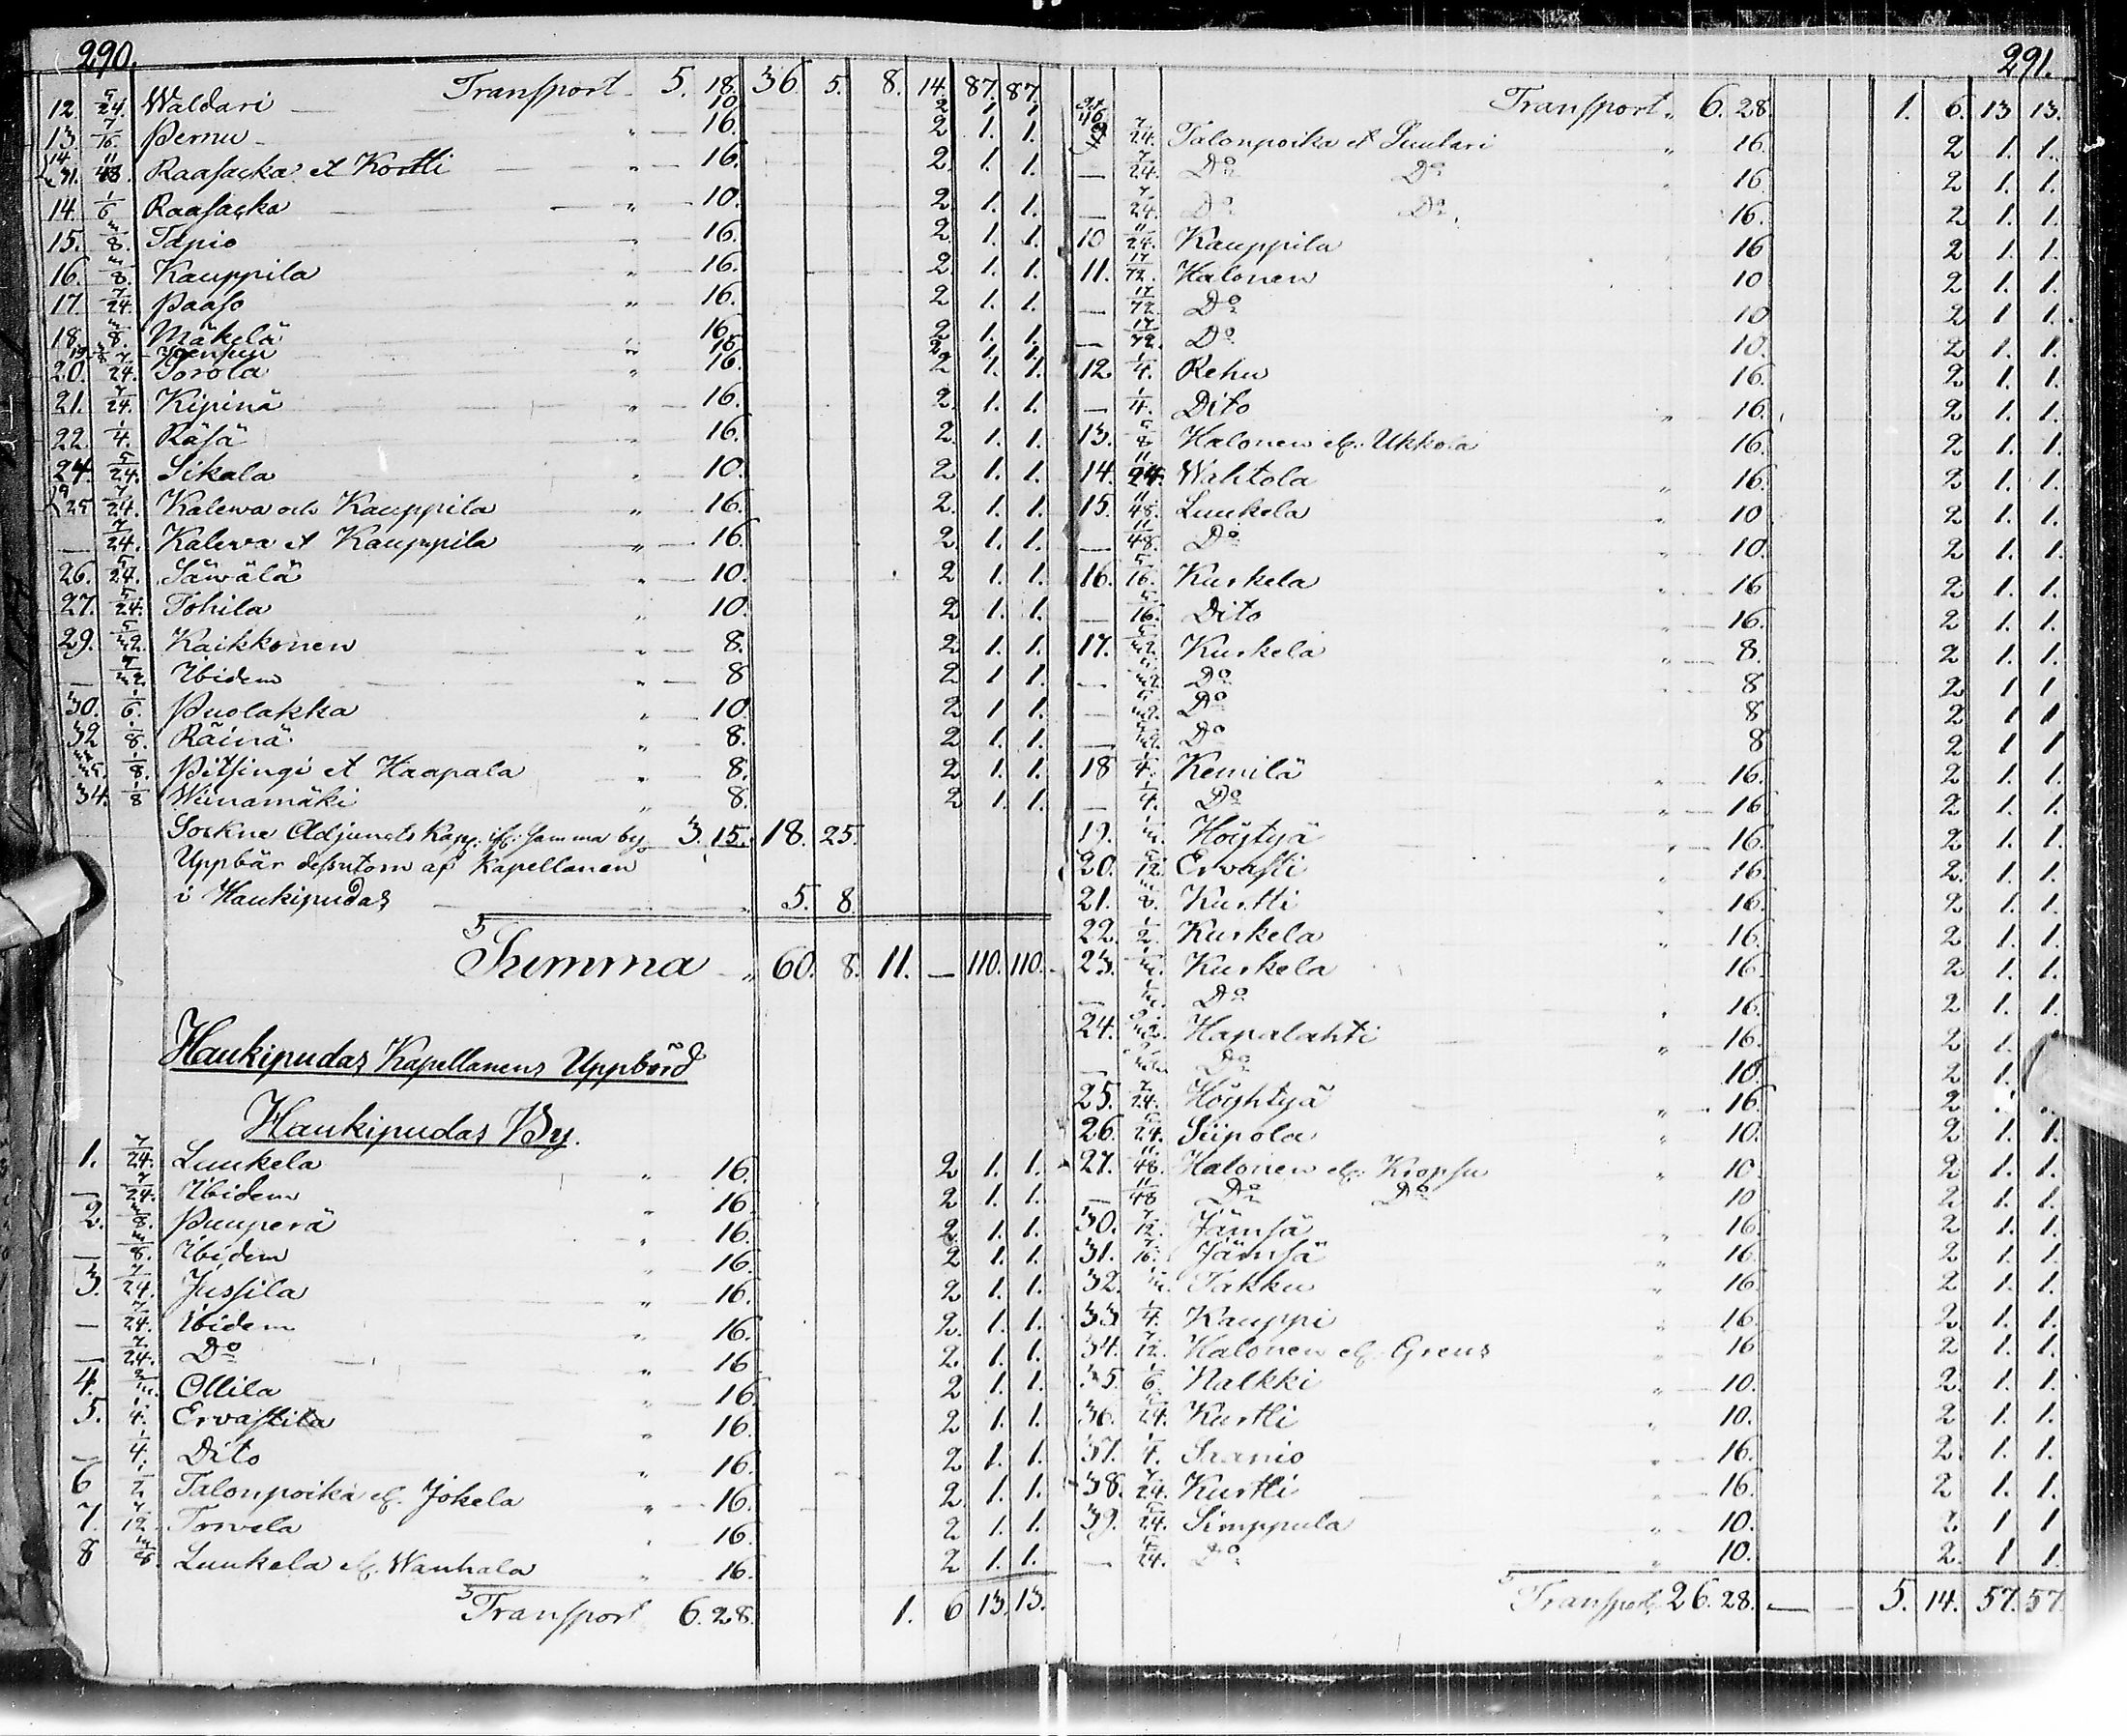 290.
Transport 5. 18. 36. 5. 8. 14. 87. 87.
12. 5/24. Waldari 10. 2 1. 1.
13. 7/16. Pernu 16. 2 1. 1.
14. 31. 11/48 Raasacka et Kortti 16. 2. 1. 1.
14. 1/6 Raasacka 10. 2. 1. 1.
15. 3/8. Tapio 16. 2. 1. 1.
16. 3/8. Kauppila 16. 2. 1. 1.
17. 7/24. Paaso 16. 2 1. 1.
18. 3/8. Mäkelä 16. 2 1. 1.
19. 3/8 16. 2. 1. 1.
20. 7/24. Torola 16. 2 1. 1.
21. 7/24. Kipinä 16. 2. 1. 1.
22. 1/4. Räsä 16. 2. 1. 1.
24. 5/24. Sikala 10. 2 1. 1.
25 7/24. Kalewa och Kauppila 16. 2. 1. 1.
— 7/24. Kalewa et Kauppila 16. 2. 1. 1.
26. 5/24. Säwälä 10. 2 1. 1.
27. 5/24. Tohila 10. 2 1. 1.
29. 5/32. Kaikkonen 8. 2 1. 1.
— 5/32. Ibidem 8 2 1 1.
30. 1/6. Puolakka 10. 2 1 1.
32 1/8. Räinä 8. 2 1. 1.
1/8. Pitsingi et Haapala 8. 2 1. 1.
34. 1/8 Wiinamäki 8. 2 1. 1.
Sockne Adjuncts Kapp. if. samma by 3. 15. 18. 25.
Uppbär dessutom af Kapellanen
i Haukipudas 5. 8.
Summa 60. 8. 11. — 110. 110.
Haukipudas Kapellanens Uppbörd
Haukipudas By.
1. 7/24. Luukela 16. 2 1. 1.
— 7/24. Ibidem 16. 2 1. 1.
2. 3/8. Puuperä 16. 2 1. 1.
— 3/8. Ibidem 16. 2 1. 1.
3. 7/24. Jussila 16. 2 1. 1.
— 7/24. Ibidem 16. 2. 1. 1.
— 7/24. Do 16 2. 1. 1.
4. 2/3. Ollila 16. 2 1. 1.
5. 1/4. Ervastila 16. 2 1. 1.
— 1/4. Dito 16. 2 1. 1.
6 1/2 Talonpoika el. Jokela 16. 2 1. 1.
7. 7/12. Torvela 16. 2 1. 1.
8 Luukela el. Wanhala 16. 2 1. 1.
Transport 6. 28. 1. 6 13. 13.
291.
Transport 6. 28 1. 6. 13 13.
7/24. Talonpoika et Puulari 16. 2 1. 1.
— 7/24. Do Do 16 2 1. 1.
— 7/24. Do Do. 16. 2 1. 1.
10 11/24. Kauppila 16 2 1. 1.
11. 17/72. Halonen 10 2 1. 1.
— 17/72. Do 10 2 1 1.
— 17/72. Do 10. 2 1. 1.
12. 1/4. Rehu 16. 2 1. 1.
— 1/4. Dito 16. 2 1. 1.
13. 5/8 Halonen el. Ukkola 16. 2 1. 1.
14. 11/24. Wahtola 16. 2 1. 1.
15. 11/48. Luukela 10 2 1. 1.
— 11/48. Do 10. 2 1. 1.
16. 5/16. Kurkela 16 2 1. 1.
— 5/16. Dito 16. 2 1. 1.
17. 5/32. Kurkela 8. 2 1. 1.
— 5/32. Do 8 2 1 1
— 5/32. Do 8 2 1 1
— 5/32. Do 8 2 1 1
18 1/4. Kemilä 16. 2 1. 1.
— 1/4. Do 16 2 1. 1.
19. 1/3. Höytyä 16. 2 1. 1.
20. 5/12. Ervasti 16. 2. 1. 1.
21. 3/8. Kurtti 16. 2 1. 1.
22. 1/2. Kurkela 16. 2 1. 1.
23. 1/3. Kurkela 16. 2 1. 1.
— 1/3. Do 16. 2 1. 1.
24. Hapalahti 16. 2 1.
— Do 10. 2 1.
25. 7/24. Höyhtyä 16. 2
26. 5/24. Siipola 10. 2 1. 1.
27. 11/48. Halonen el. Kropsu 10 2 1. 1.
— 11/48 Do Do 10 2 1. 1.
30. 7/12. Jämsä 16. 2 1. 1.
31. 7/16. Jämsä 16. 2 1. 1.
32. 1/3. Takku 16. 2 1. 1.
33 1/4. Kauppi 16. 2. 1. 1.
34. 7/12. Halonen el. Greus 16 2 1. 1.
35. 1/6. Halkki 10. 2. 1. 1.
36. 5/24. Kurtti 10. 2 1. 1.
37. 1/4. Saanio 16. 2. 1. 1.
38. 7/24. Kurtti 16. 2 1. 1.
39. 5/24. Simppula 10. 2 1 1
— 5/24. Do 10. 2. 1 1.
Transport 26. 28. — — 5. 14. 57. 57.